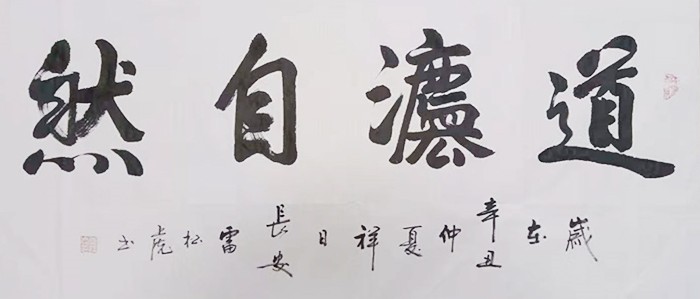 道灋自然
歲在辛丑仲夏祥日長安雷松虎书